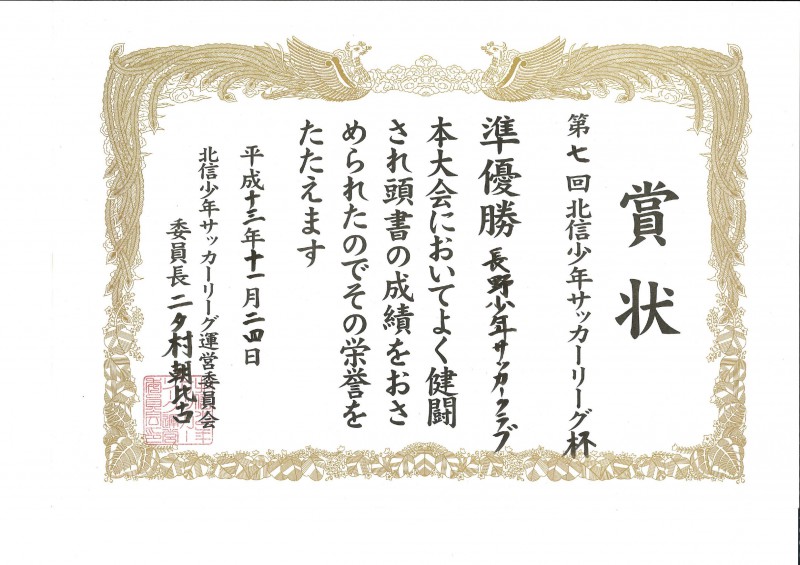 賞状
第七回北信少年サッカーリーグ杯
準優勝 長野少年サッカークラブ
本大会においてよく健闘
され頭書の成績をおさ
められたのでその栄誉を
たたえます
平成十三年十一月二四日
北信少年サッカーリーグ運営委員会
委員長 二夕村朝比古